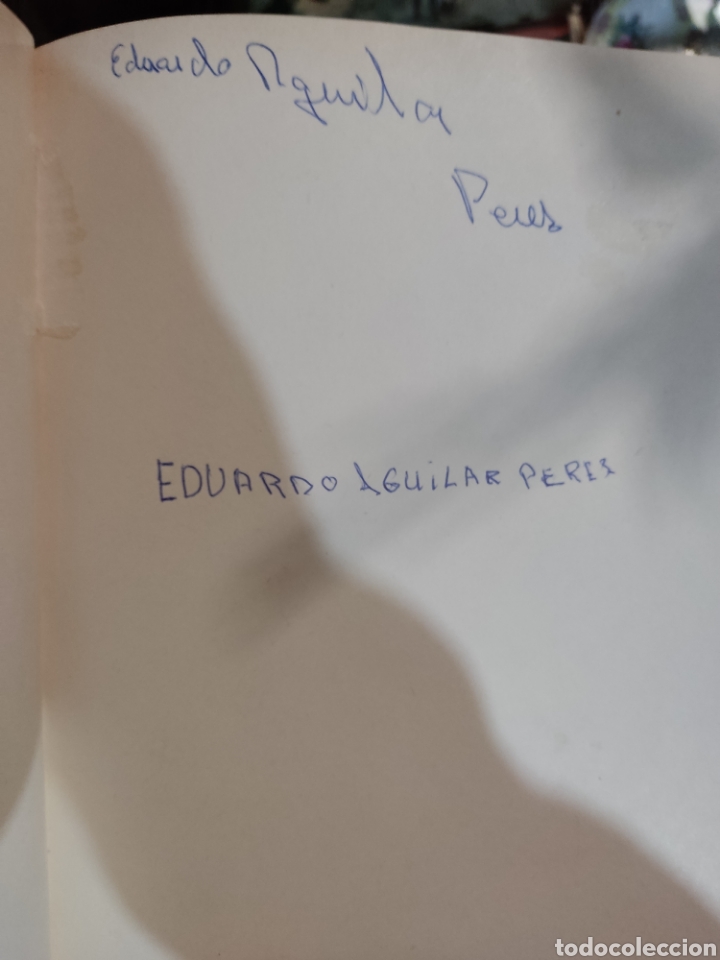 Eduardo Aguilar
Peres
EDUARDO AGUILAR PERES
todocoleccion